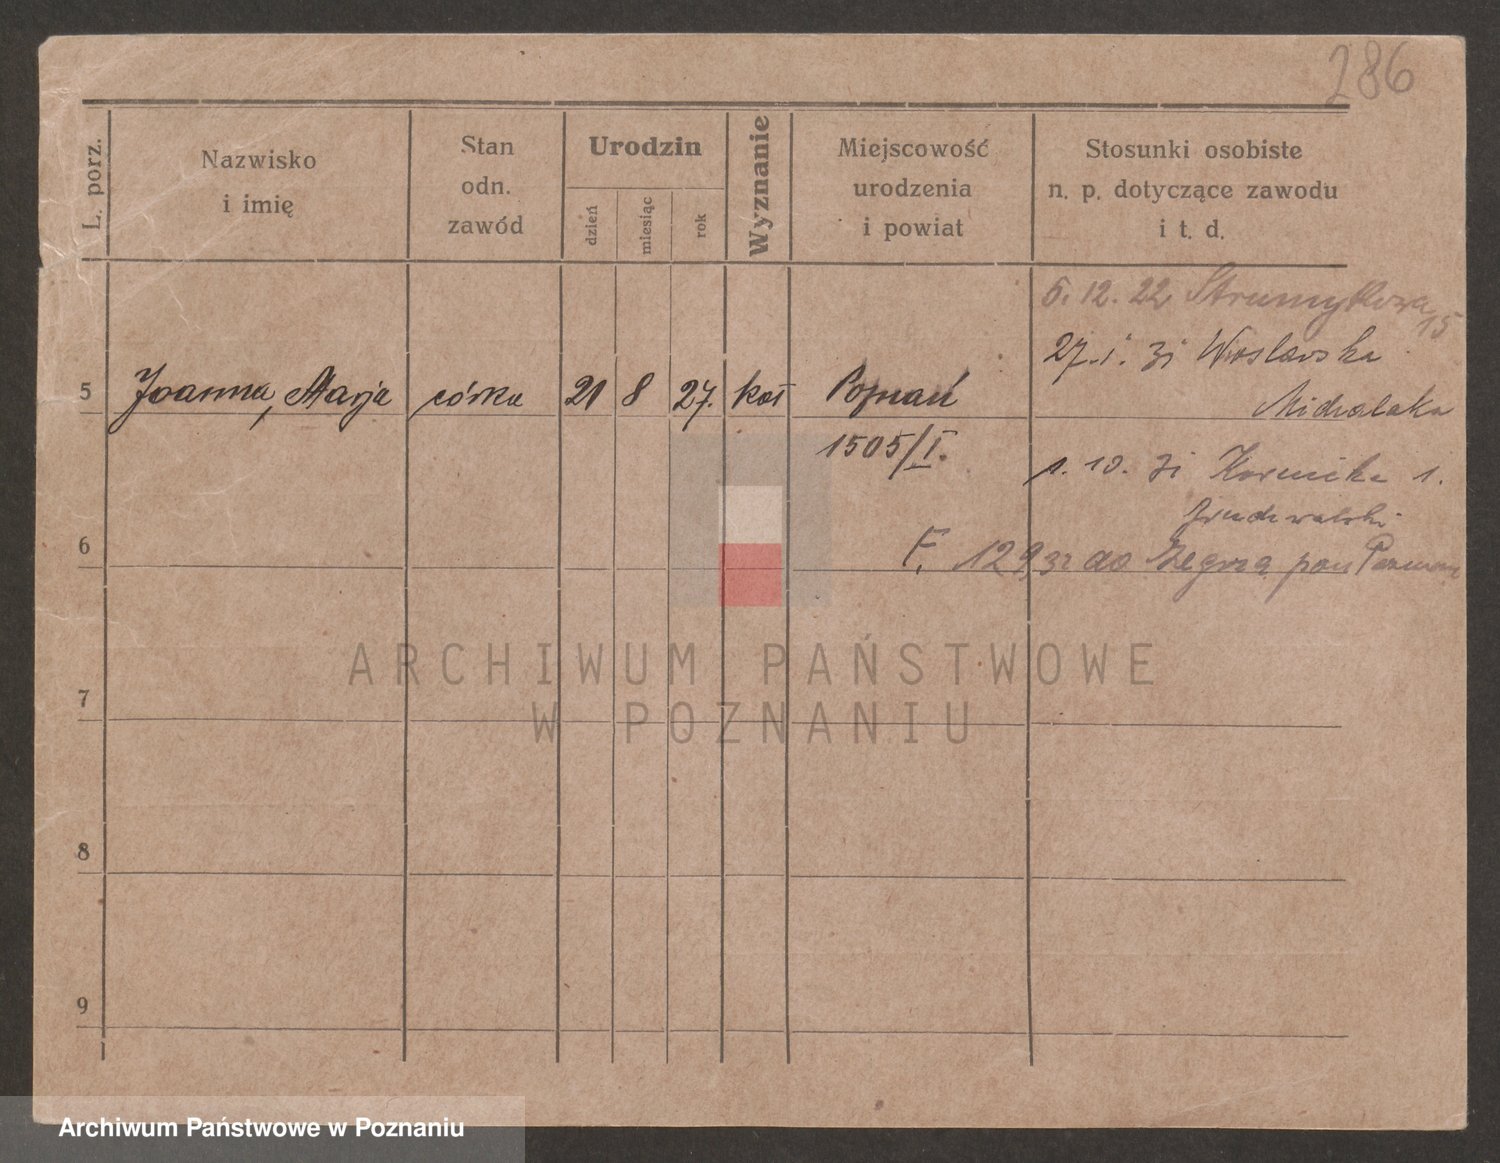 286
L. porz.
Nazwisko
i imię
Stan
odn.
zawód
Urodzin
dzień
miesiąc
rok
Wyznanie
Miejscowość
urodzenia
i powiat
Stosunki osobiste
n. p. dotyczące zawodu
i t. d.
5. 12. 22 Strumykowa 15
27. 1. 31
5 Joanna, Marja córka 21 8 27. kat Poznań
1505/I.
1. 10. 31 1.
6
F. 12 9 32 do Żegrza pow
7
8
9
ARCHIWUM PAŃSTWOWE
W POZNANIU
Archiwum Państwowe w Poznaniu